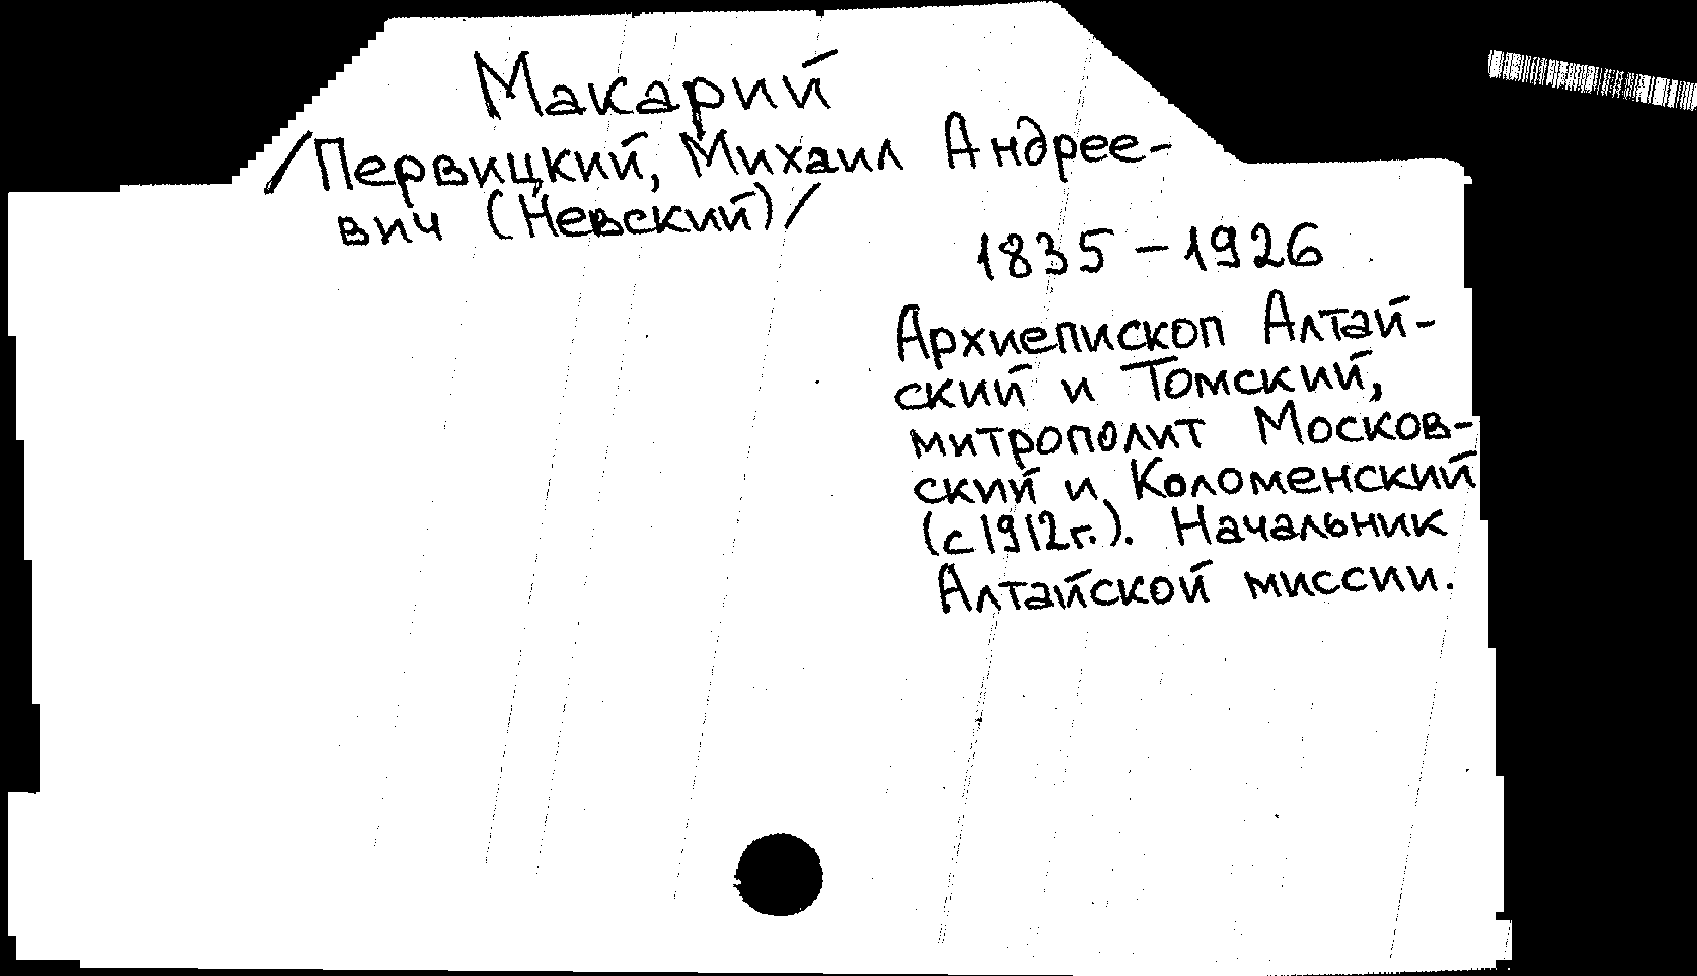 Макарий
/Первицкий, Михаил Андрее-
вич (Невский)/
1835 – 1926
Архиепископ Алтай-
ский и Томский,
митрополит Москов-
ский и Коломенский
(с 1912 г.). Начальник
Алтайской миссии.